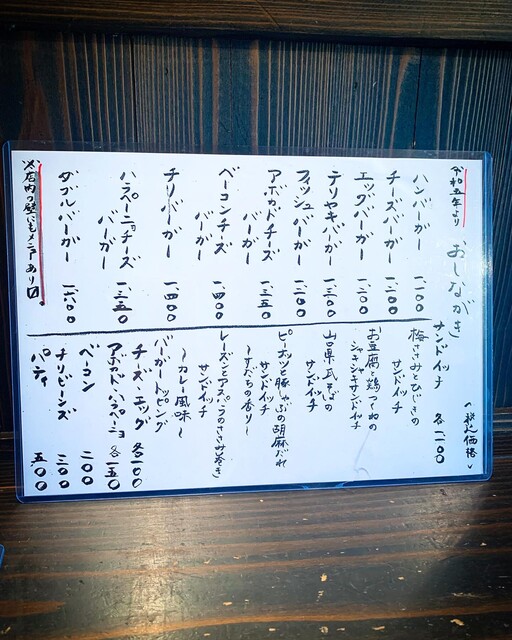 令和五年より
おしながき
〈税込価格〉
ハンバーガー 一、一〇〇
チーズバーガー 一、二〇〇
エッグバーガー 一、二〇〇
テリヤキバーガー 一、三〇〇
フィッシュバーガー 一、二〇〇
アボカドチーズ
バーガー 一、三五〇
ベーコンチーズ
バーガー 一、四〇〇
チリバーガー 一、四〇〇
ハラペーニョチーズ
バーガー 一、三五〇
ダブルバーガー 一、六〇〇
※店内の壁にもメニューあり〼
サンドイッチ 各一、一〇〇
梅ささみとひじきの
サンドイッチ
お豆腐と鶏つくねの
シャキシャキサンドイッチ
山口県瓦そばの
サンドイッチ
ピーナッツと豚しゃぶの胡麻だれ
サンドイッチ
〜すだちの香り〜
レーズンとアスパラのささみ巻き
サンドイッチ
〜カレー風味〜
バーガートッピング
チーズ・エッグ 各一〇〇
アボカド・ハラペーニョ 各一五〇
ベーコン 二〇〇
チリビーンズ 三〇〇
パティ 五〇〇